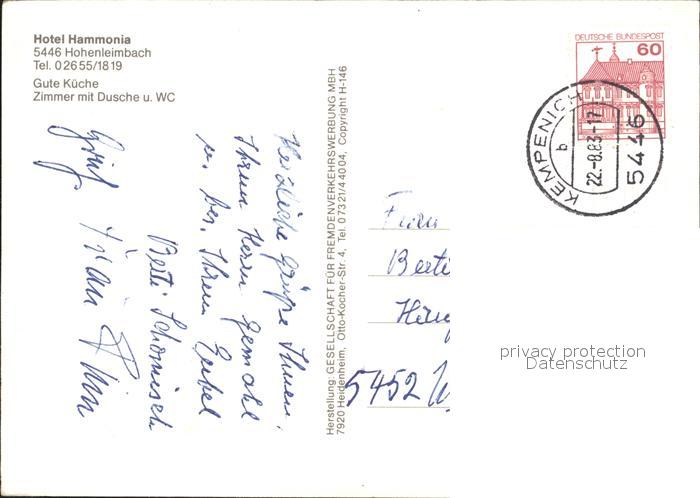 Hotel Hammonia
5446 Hohenleimbach
Tel. 02655/1819
Gute Küche
Zimmer mit Dusche u. WC
Herzliche Grüße Ihnen,
Ihrem Herrn Gemahl
u. bes. Ihrem Enkel
Berti Schomisch
Herstellung: GESELLSCHAFT FÜR FREMDENVERKEHRSWERBUNG MBH
7920 Heidenheim, Otto-Kocher-Str. 4, Tel. 07321/44004, Copyright H-146
DEUTSCHE BUNDESPOST
60
KEMPENICH
b
22.-8.83-17
5446
Frau
Berti
5452
privacy protection
Datenschutz